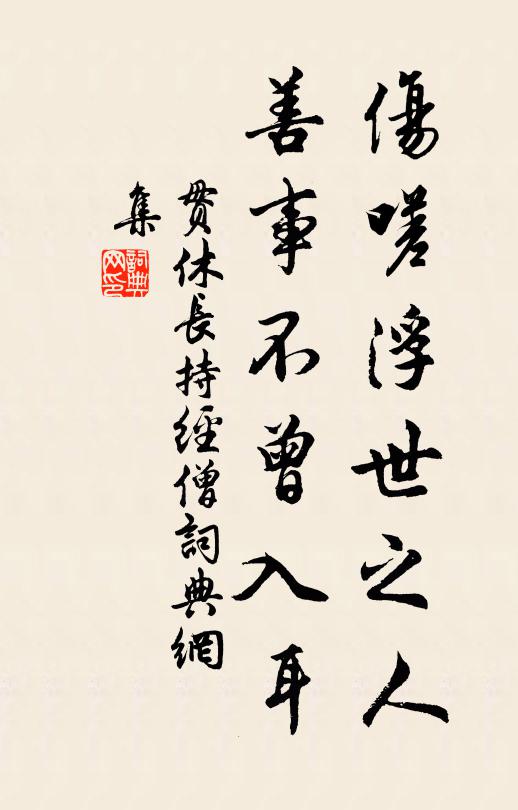 傷嗟浮世之人
善事不曾入耳
貫休長持經僧詞典網
集
詞典
网印